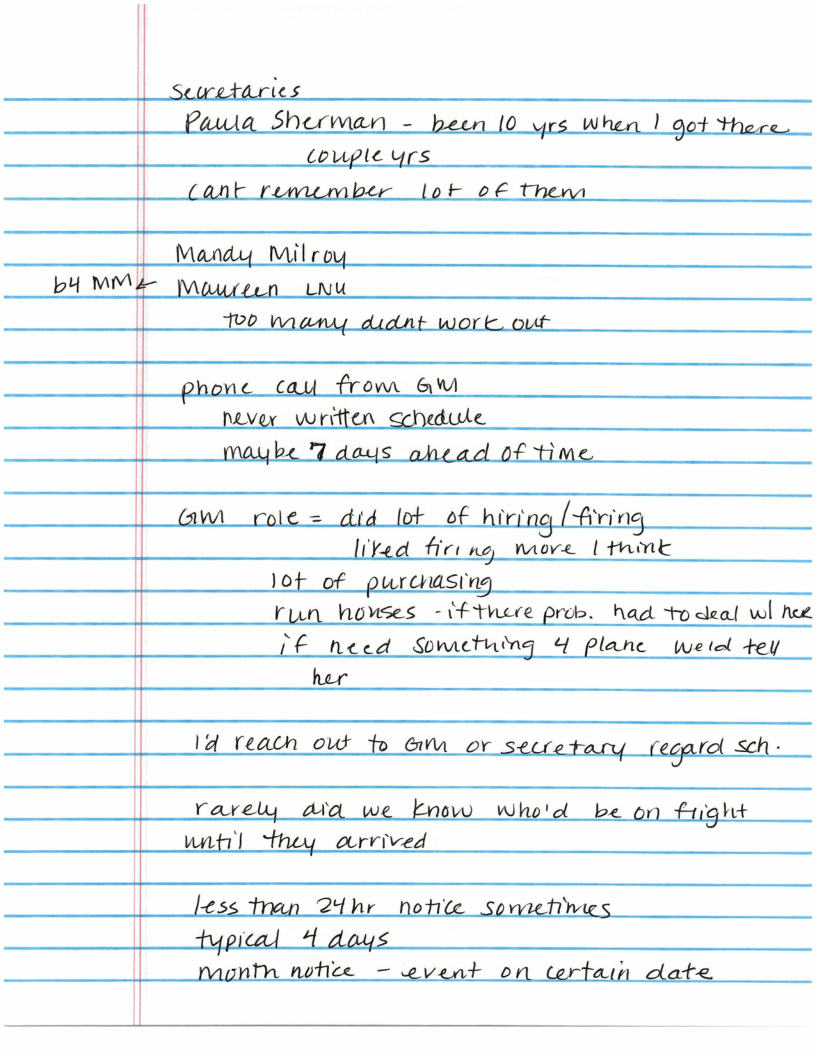 Secretaries
Paula Sherman - been 10 yrs when I got there
couple yrs
cant remember lot of them
Mandy Milroy
b4 MM ← Maureen LNU
too many didnt work out
phone call from GM
never written schedule
maybe 7 days ahead of time
GM role = did lot of hiring/firing
liked firing more I think
lot of purchasing
run houses - if there prob. had to deal w/ her
if need something 4 plane we'd tell
her
I'd reach out to GM or secretary regard sch.
rarely did we know who'd be on flight
until they arrived
less than 24 hr notice sometimes
typical 4 days
month notice - event on certain date